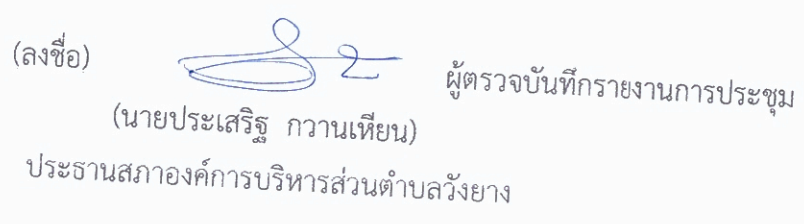 (ลงชื่อ) ผู้ตรวจบันทึกรายงานการประชุม
(นายประเสริฐ กวานเหียน)
ประธานสภาองค์การบริหารส่วนตำบลวังยาง